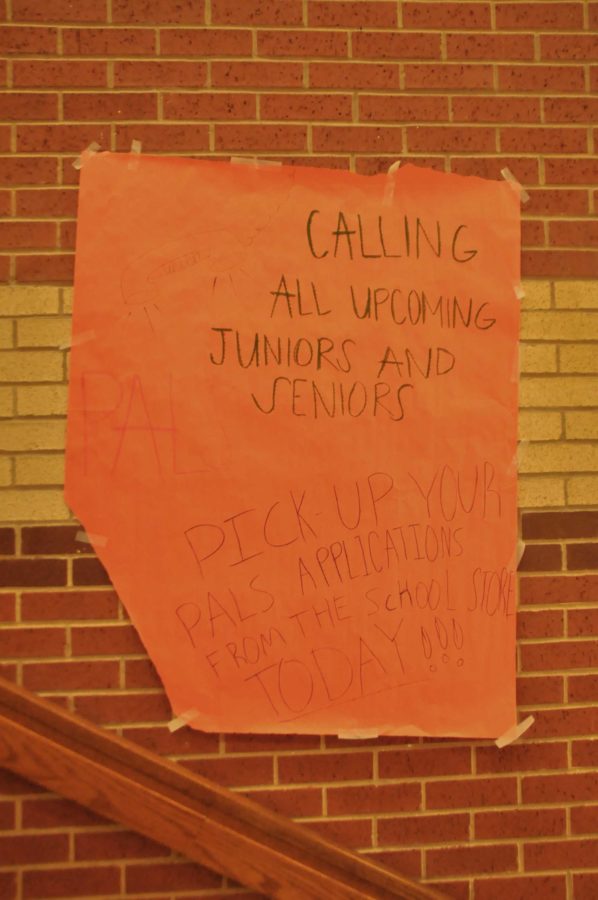 CALLING
ALL UPCOMING
JUNIORS AND
SENIORS
PAL
PICK-UP YOUR
PALS APPLICATIONS
FROM THE SCHOOL STORE
TODAY!!!